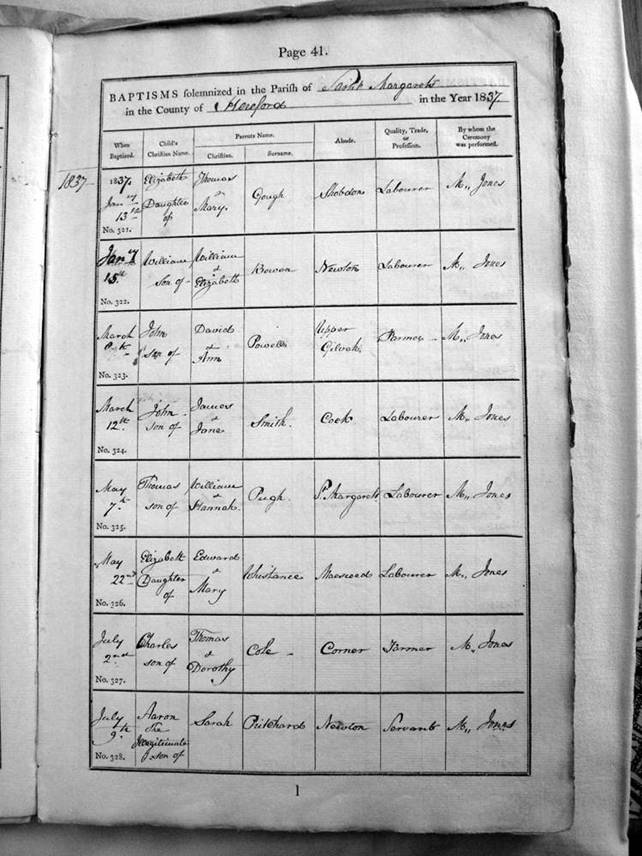 Page 41.
BAPTISMS solemnized in the Parish of Saint Margarets
in the County of Hereford in the Year 1837
When Baptized. Child's Christian Name. Parents Name. Christian. Surname. Abode. Quality, Trade, or Profession. By whom the Ceremony was performed.
1837
1837. Elizabeth Thomas
Jany Daughter & Gough Shobdon Labourer M,, Jones
13th of Mary.
No. 321.
Jany William William
15th son of & Bowen Newton Labourer M,, Jones
Elizabeth
No. 322.
March John David Upper
son of & Powell Farmer M,, Jones
Ann
No. 323.
March John James
12th son of & Smith. Cook Labourer M,, Jones
Jane
No. 324.
May Thomas William
7th son of & Pugh. St Margarets Labourer M,, Jones
Hannah.
No. 325.
May Elizabeth Edward
22nd Daughter & Whistance Maescoed Labourer M,, Jones
of Mary
No. 326.
July Charles Thomas
2nd son of & Cole Corner Farmer M,, Jones
Dorothy
No. 327.
July Aaron Sarah Pritchard Newton Servant M,, Jones
9th The
Illegitimate
son of
No. 328.
1